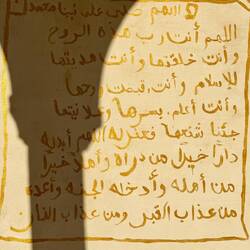 اللهم صلي على نبينا محمد
اللهم أنت رب هذه الروح
وأنت خلقتها وأنت هديتها
للإسلام وأنت قبضت روحها
وأنت أعلم بسرها وعلانيتها
جئنا شفعها فغفر له اللهم أبدله
دارا خيرا من داره وأهلا خيرا
من أهله وأدخله الجنة وأعذه
من عذاب القبر ومن عذاب النار